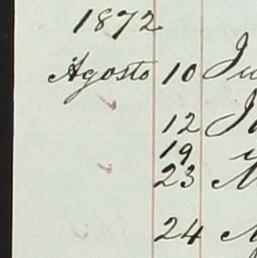 1872
Agosto 10
12
19
23
24